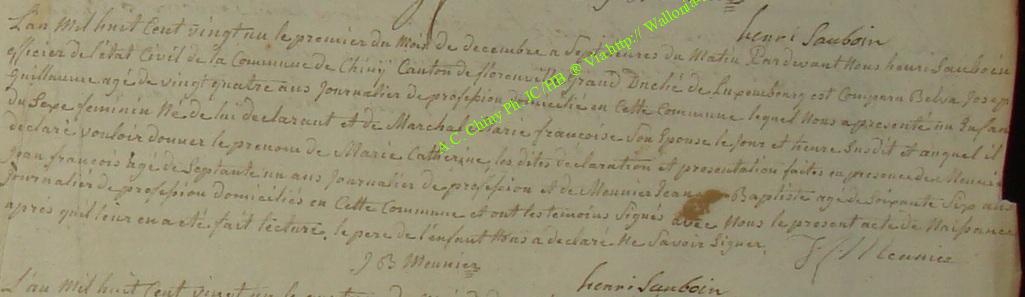 henri Sauboin
L'an Mil huit Cent vingt un le premier du Mois de decembre a Sept heures du Matin Pardevant Nous henri Sauboin
officier de l'état Civil de la Commune de Chiny Canton de florenville grand Duché de Luxembourg est Comparu Belva Joseph
Guillaume agé de vingt quatre ans Journalier de profession domicilié en Cette Commune lequel Nous a presenté un Enfant
du Sexe feminin Né de lui declarant et de Marchal Marie francoise Son Epouse le Jour et heure Susdit et auquel il
declaré vouloir donner le prenom de Marie Catherine les dites déclaration et presentation faites en presence de Meunier
Jean francois agé de Septante un ans Journalier de profession et de Meunier Jean Baptiste agé de Soixante Six ans
Journalier de profession domiciliés en Cette Commune et ont les temoins Signés avec Nous le present acte de Naissance
après qu'il leur en a été fait lecture, le pere de l'enfant Nous a déclaré Ne Savoir Signer.
J B Meunier
J f Meunier
henri Sauboin
L'an Mil huit Cent vingt un le
A.C. Chiny Ph. JC /HB @ Via http:// Wallonia